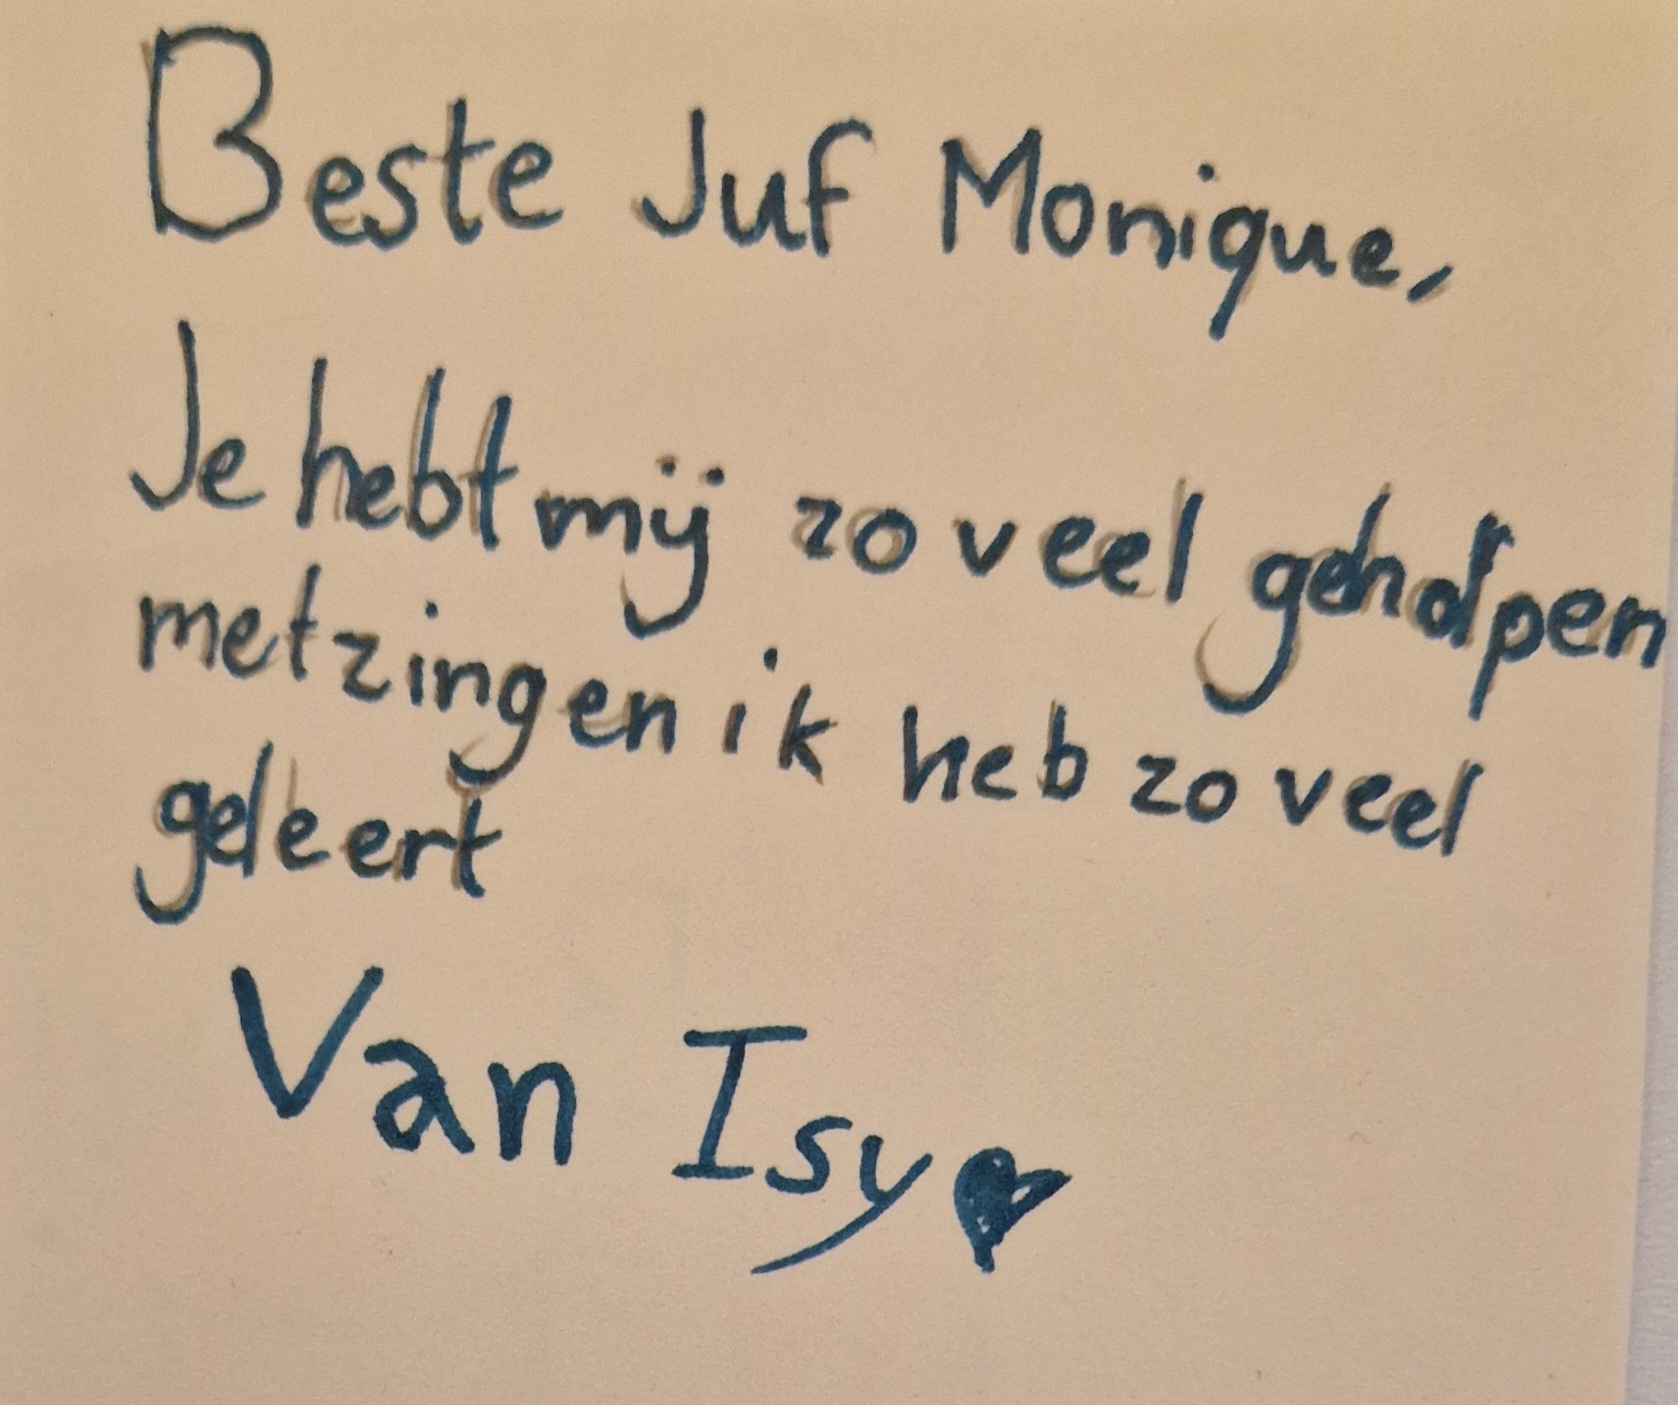 Beste Juf Monique,
Je hebt mij zo veel geholpen
met zingen ik heb zo veel
geleert
Van Isy